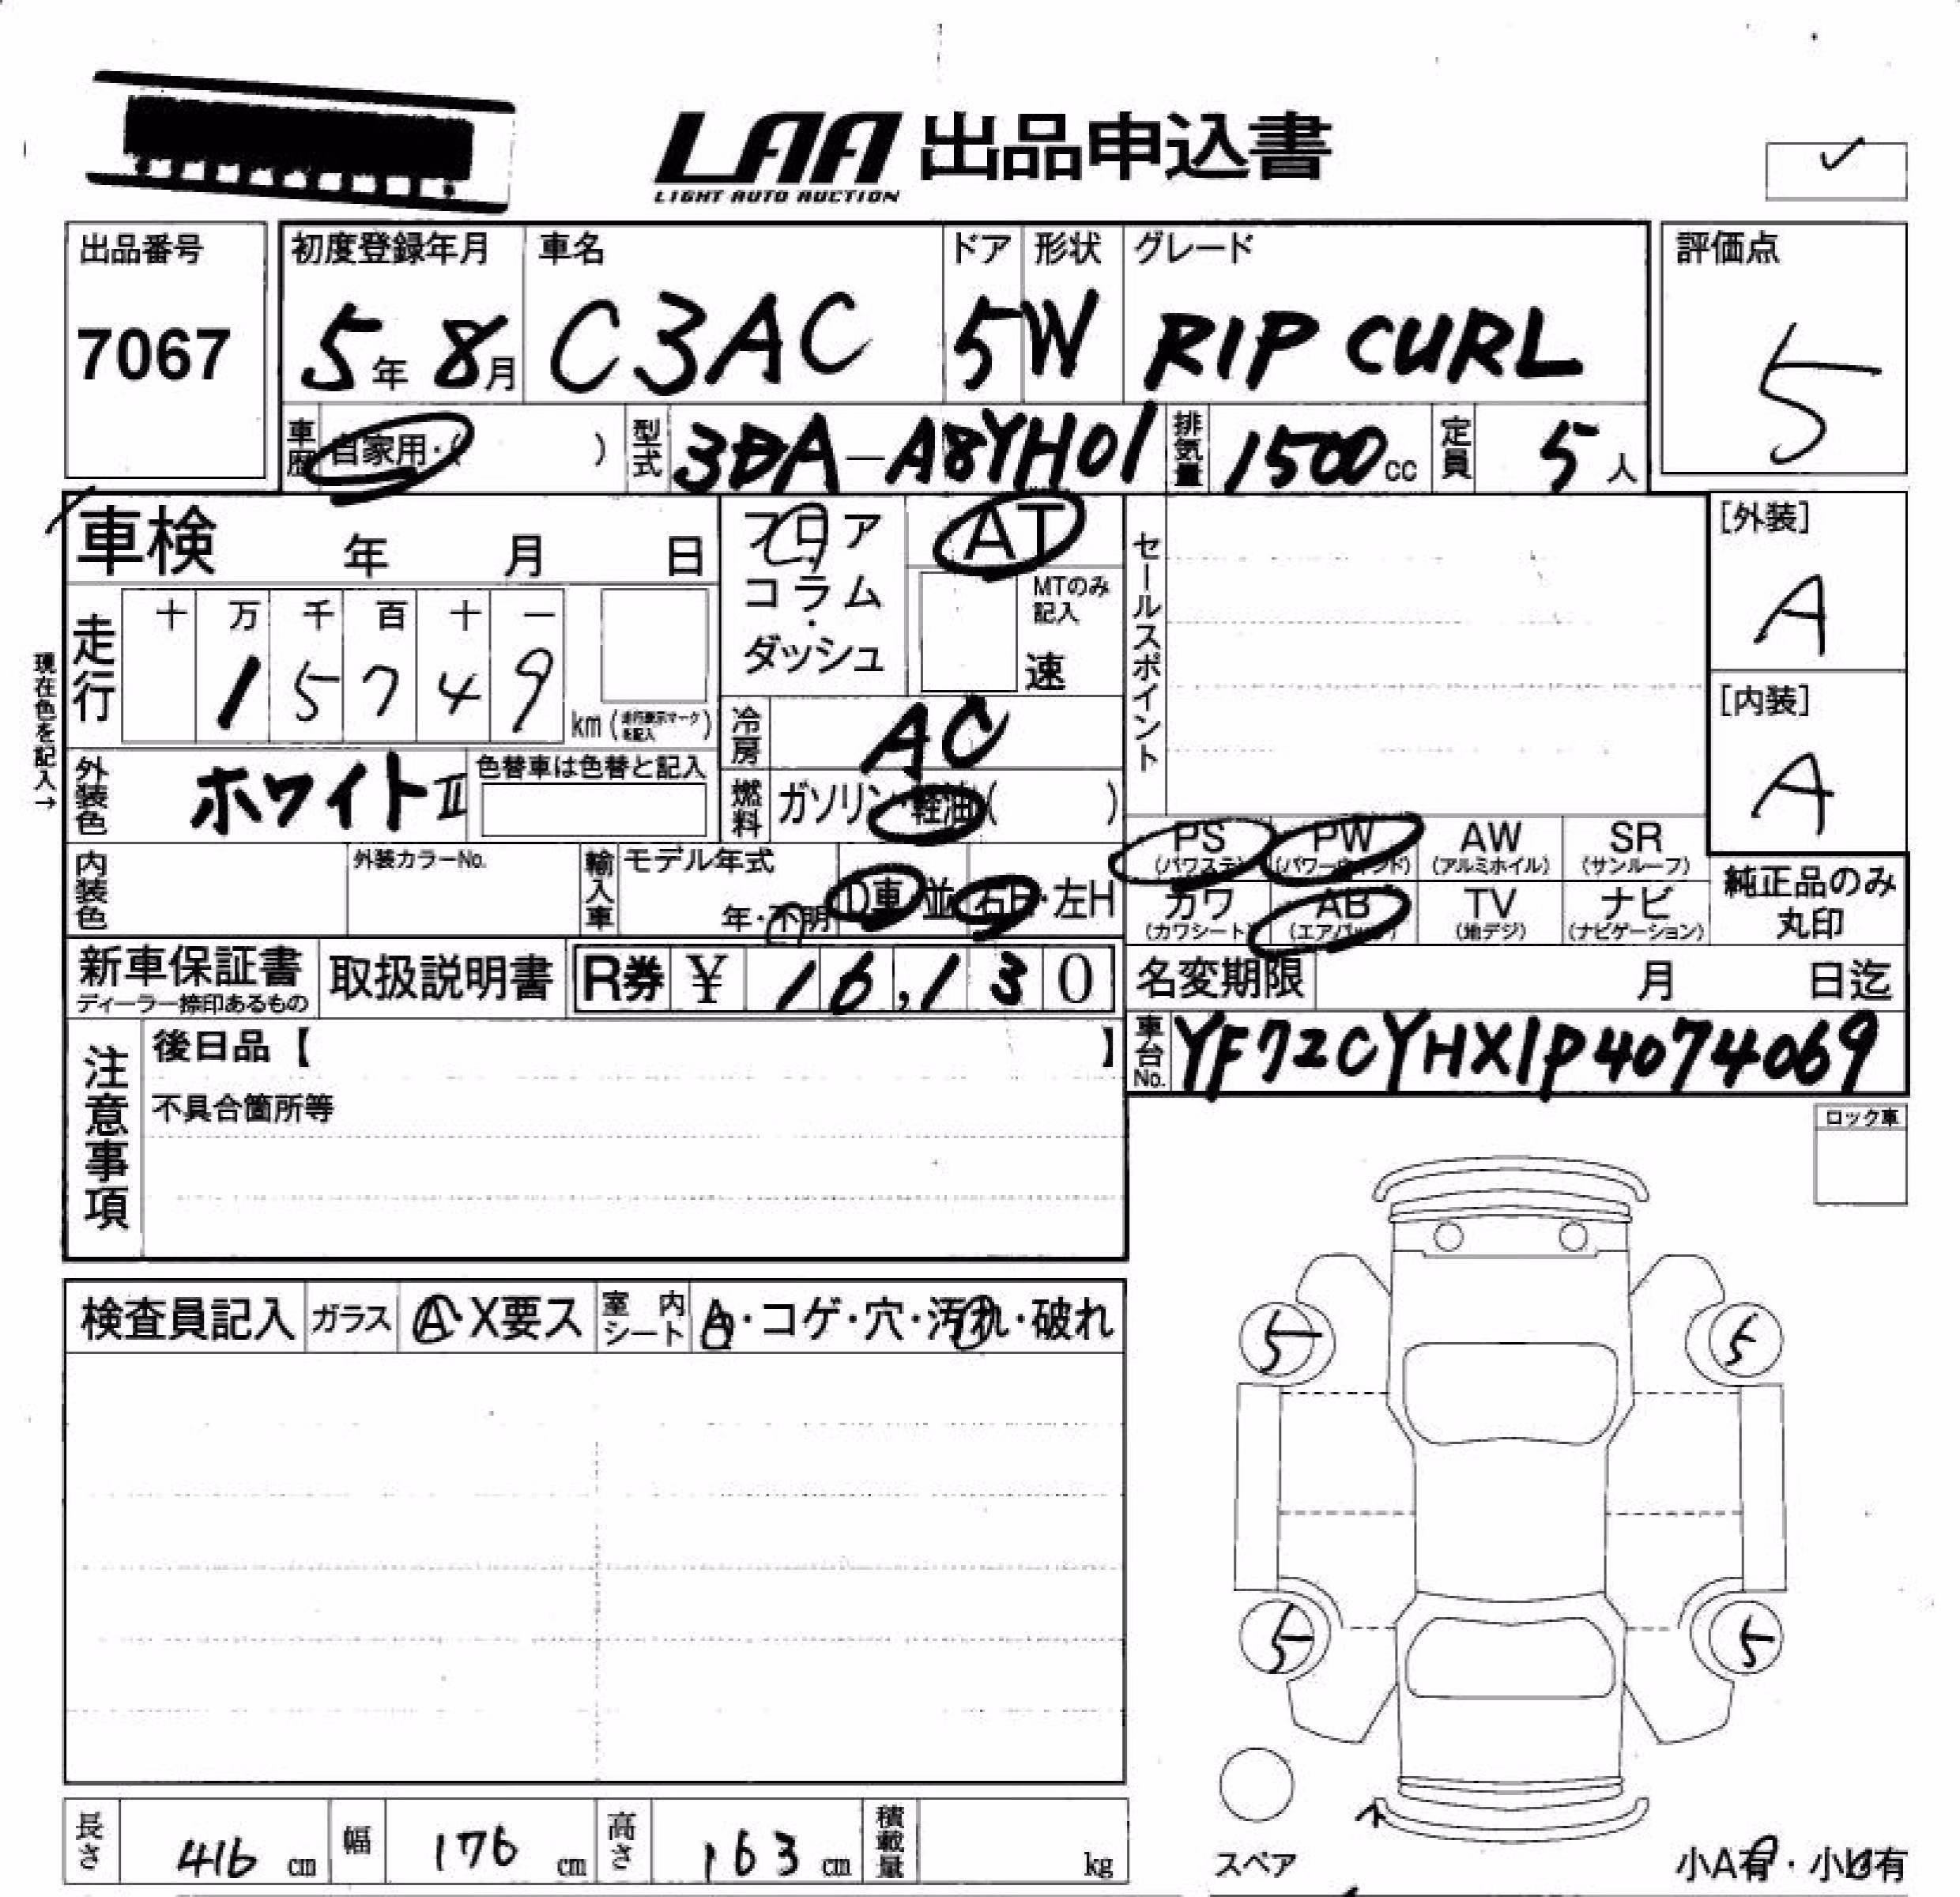 LAA 出品申込書
LIGHT AUTO AUCTION
出品番号
7067
初度登録年月 車名 ドア 形状 グレード
5年 8月 C3AC 5 W RIP CURL
評価点
5
車歴 自家用・( ) 型式 3DA-A8YH01 排気量 1500cc 定員 5人
車検 年 月 日
フロア
コラム
・
ダッシュ
AT
MTのみ
記入
速
セールスポイント
[外装]
A
[内装]
A
現在色を記入→
走行 十 万 千 百 十 一
1 5 7 4 9 km (走行表示マークを記入)
冷房 AC
外装色 ホワイトII 色替車は色替と記入
燃料 ガソリン・軽油( )
PS AW SR
PW
(パワステ) (パワーウィンド) (アルミホイル) (サンルーフ)
カワ AB TV ナビ
(カワシート) (エアバッグ) (地デジ) (ナビゲーション)
純正品のみ
丸印
内装色 外装カラーNo. 輸入車 モデル年式
年・不明 D車 並 右H・左H
新車保証書
ディーラー捺印あるもの
取扱説明書 R券 ¥ 16,130
名変期限 月 日迄
車台No. YF72CYHX1P4074069
注意事項
後日品【 】
不具合箇所等
ロック車
検査員記入 ガラス A・X要ス 室内シート A・コゲ・穴・汚れ・破れ
5 5
5 5
長さ 416 cm 幅 176 cm 高さ 163 cm 積載量 kg
スペア
小A有・小U有